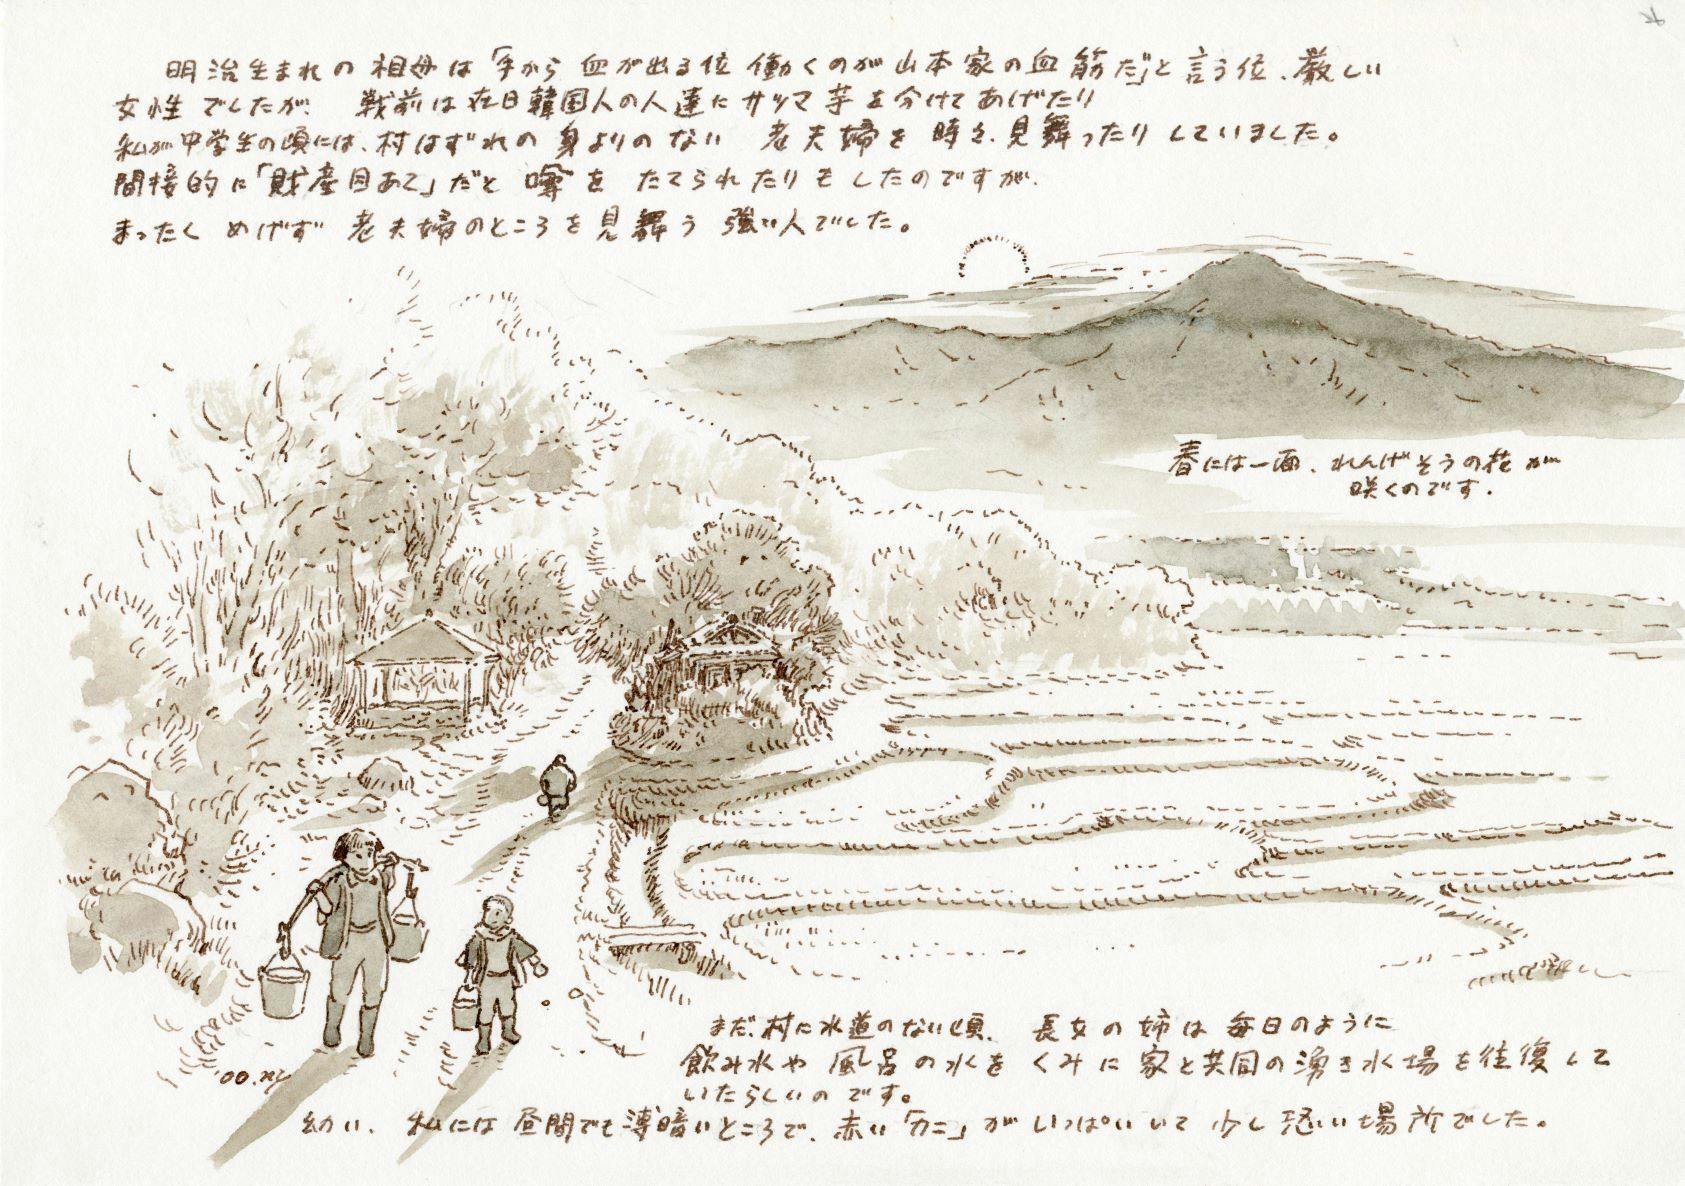 明治生まれの祖母は「手から血が出る位働くのが山本家の血筋だ」と言う位、厳しい
女性でしたが、戦前は在日韓国人の人達にサツマ芋を分けてあげたり
私が中学生の頃には、村はずれの身よりのない老夫婦を時々、見舞ったりしていました。
間接的に「財産目あて」だと噂をたてられたりもしたのですが、
まったくめげず老夫婦のところを見舞う強い人でした。
春には一面、れんげそうの花が
咲くのです。
まだ、村に水道のない頃、長女の姉は毎日のように
飲み水や風呂の水をくみに家と共同の湧き水場を往復して
いたらしいのです。
幼い、私には昼間でも薄暗いところで、赤い「カニ」がいっぱいいて少し恐い場所でした。